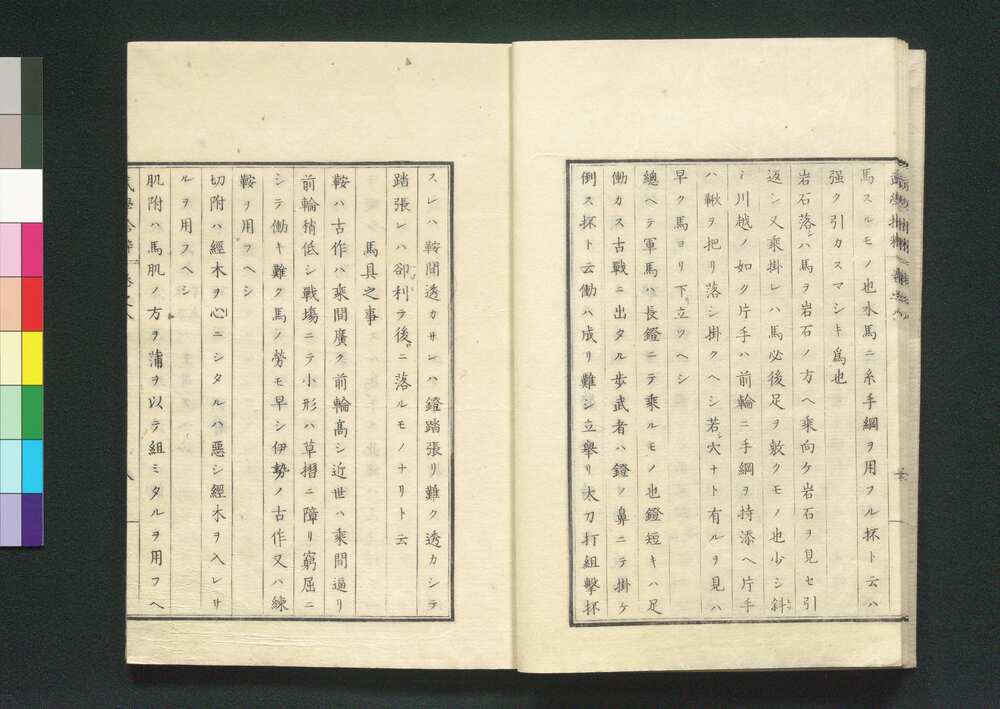 馬スルモノ也水馬ニ糸手綱ヲ用フル抔ト云ハ
强ク引カスマシキ爲也
岩石落シハ馬ヲ岩石ノ方ヘ乘向ケ岩石ヲ見セ引
返シ又乘掛レハ馬必後足ヲ敷クモノ也少シ斜
ミ川越ノ如ク片手ハ前輪ニ手綱ヲ持添ヘ片手
ハ鞦ヲ把リ落シ掛クヘシ若シ穴ナト有ルヲ見ハ
早ク馬ヨリ下リ立ツヘシ
總ヘテ軍馬ハ長鐙ニテ乘ルモノ也鐙短キハ足
働カス古戰ニ出タル步武者ハ鐙ノ鼻ニテ掛ケ
倒ス抔ト云働ハ成リ難シ立舉リ太刀打組擊抔
スレハ鞍間透カサレハ鐙踏張リ難ク透カシテ
踏張レハ卻テ利ラ後ニ落ルモノナリト云
馬具之事
鞍ハ古作ハ乘間廣ク前輪高シ近世ハ乘間逼リ
前輪稍低シ戰塲ニテ小形ハ草摺ニ障リ窮屈ニ
シテ働キ難ク馬ノ勞モ早シ伊勢ノ古作又ハ練
鞍ヲ用フヘシ
切附ハ經木ヲ心ニシタルハ惡シ經木ヲ入レサ
ルヲ用フヘシ
肌附ハ馬肌ノ方ヲ蒲ヲ以テ組ミタルヲ用フヘ
八